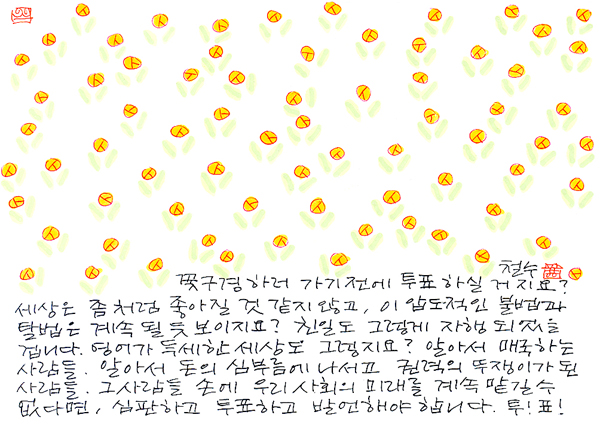 철수
꽃구경하러 가기전에 투표하실 거지요?
세상은 좀처럼 좋아질 것 같지않고, 이 압도적인 불법과
탈법은 계속 될 듯 보이지요? 친일도 그렇게 자행 되었을
겁니다. 영어가 득세한 세상도 그렇지요? 알아서 매국하는
사람들. 알아서 돈의 심부름에 나서고 권력의 뚜쟁이가 된
사람들. 그사람들 손에 우리 사회의 미래를 계속 맡길 수
없다면, 심판하고 투표하고 발언해야 합니다. 투!표!